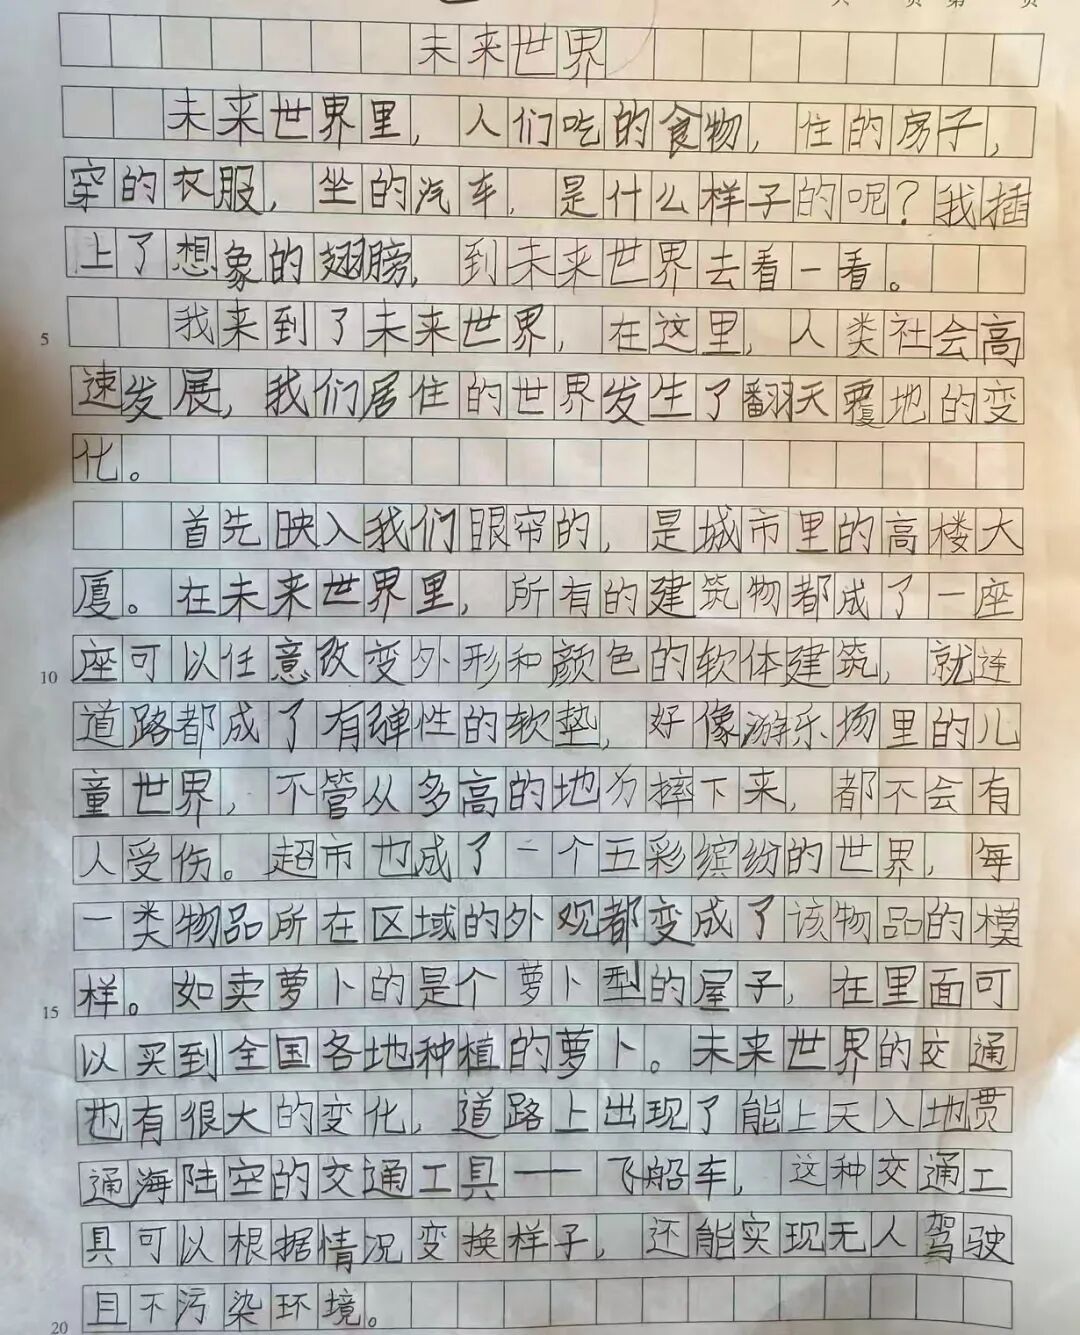 未来世界
未来世界里，人们吃的食物，住的房子，
穿的衣服，坐的汽车，是什么样子的呢？我插
上了想象的翅膀，到未来世界去看一看。
5
我来到了未来世界，在这里，人类社会高
速发展，我们居住的世界发生了翻天覆地的变
化。
首先映入我们眼帘的，是城市里的高楼大
厦。在未来世界里，所有的建筑物都成了一座
10
座可以任意改变外形和颜色的软体建筑，就连
道路都成了有弹性的软垫，好像游乐场里的儿
童世界，不管从多高的地方摔下来，都不会有
人受伤。超市也成了一个五彩缤纷的世界，每
一类物品所在区域的外观都变成了该物品的模
15
样。如卖萝卜的是个萝卜型的屋子，在里面可
以买到全国各地种植的萝卜。未来世界的交通
也有很大的变化，道路上出现了能上天入地贯
通海陆空的交通工具——飞船车，这种交通工
具可以根据情况变换样子，还能实现无人驾驶
20
且不污染环境。